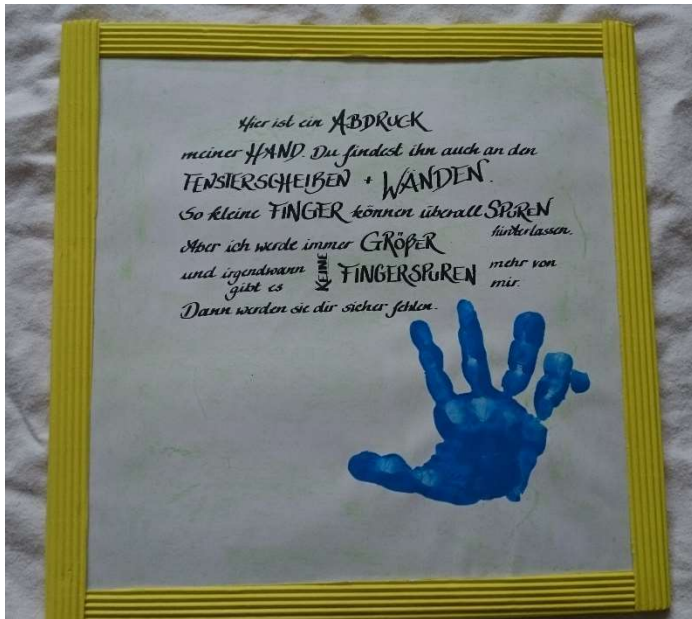 Hier ist ein ABDRUCK
meiner HAND. Du findest ihn auch an den
FENSTERSCHEIBEN + WÄNDEN.
So kleine FINGER können überall SPUREN
hinterlassen.
Aber ich werde immer GRÖßER
und irgendwann
gibt es
KEINE
FINGERSPUREN
mehr von
mir.
Dann werden sie dir sicher fehlen.